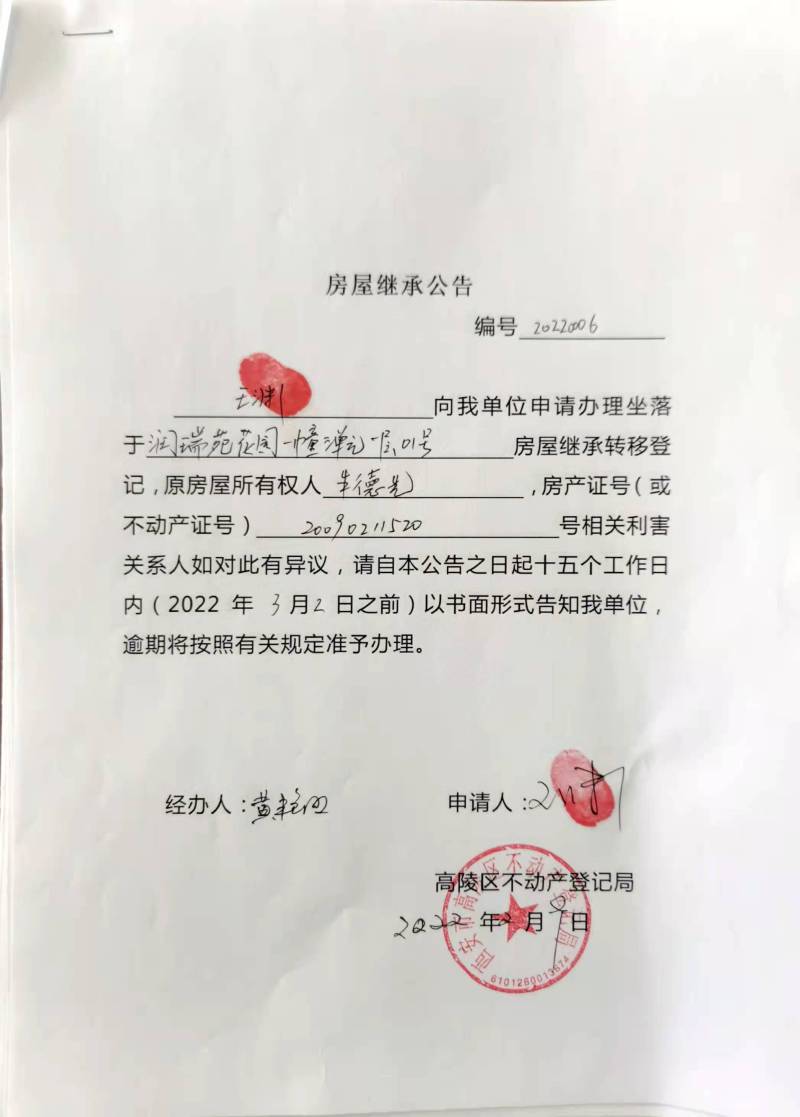 房屋继承公告
编号 2022006
王渊 向我单位申请办理坐落
于 润瑞苑花园一幢 单元一层01号 房屋继承转移登
记，原房屋所有权人 德 ，房产证号（或
不动产证号） 20090211520 号相关利害
关系人如对此有异议，请自本公告之日起十五个工作日
内（2022 年 3 月 2 日之前）以书面形式告知我单位，
逾期将按照有关规定准予办理。
经办人：黄艳 申请人：王渊
高陵区不动产登记局
2022 年 2 月 9 日
西安市高陵区不动产登记局
6101260013674